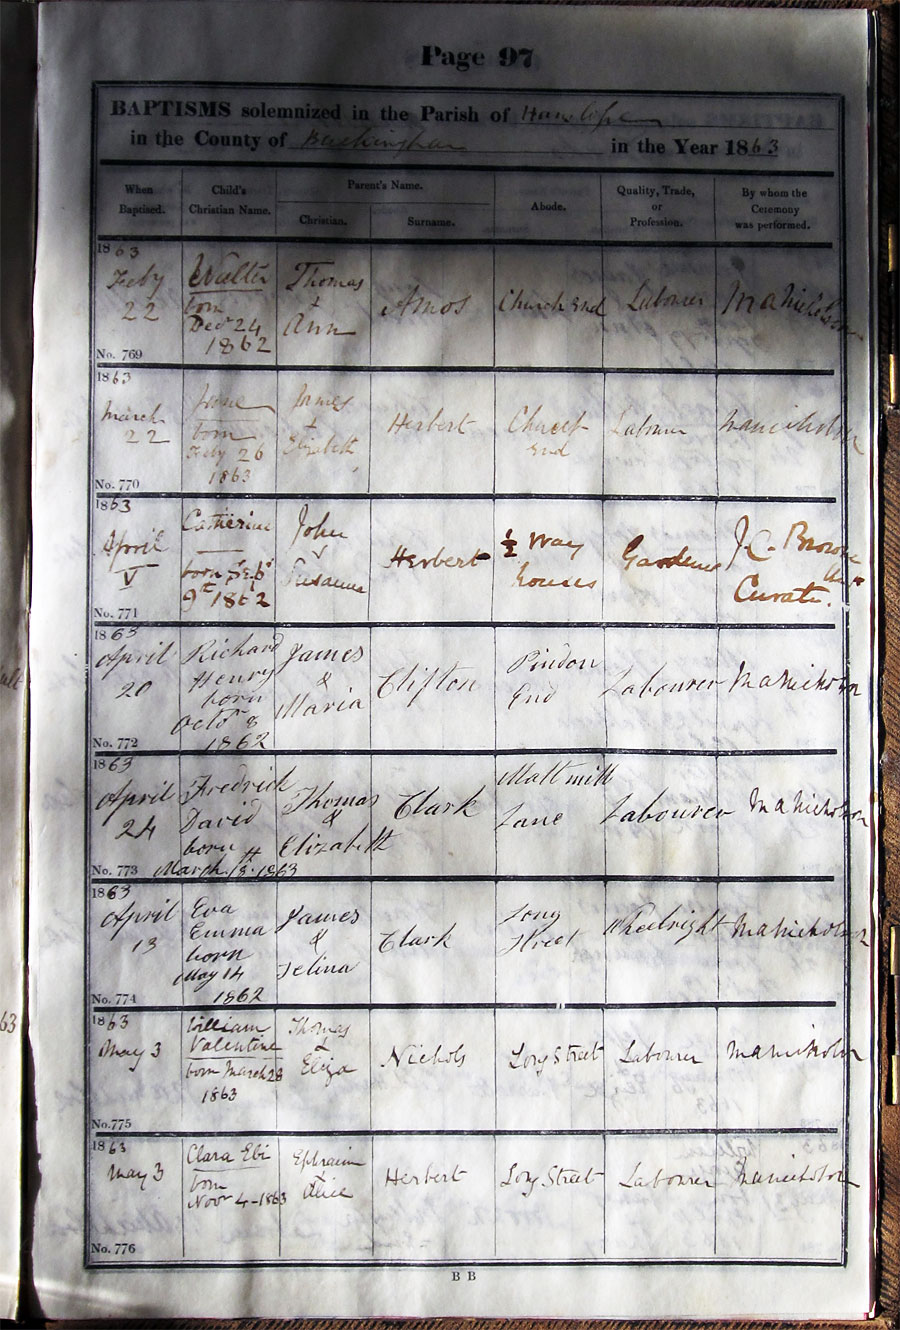 Page 97
BAPTISMS solemnized in the Parish of Hanslope
in the County of Buckingham in the Year 1863
When Baptised.
Child's Christian Name.
Parent's Name.
Christian.
Surname.
Abode.
Quality, Trade, or Profession.
By whom the Ceremony was performed.
1863
Feby 22
Walter
born
Decr 24
1862
Thomas
&
Ann
Amos
Church End
Labourer
M A Nicholson
No. 769
1863
March 22
Jane
born
Feby 26
1863
James
&
Elizabeth
Herbert
Church
End
Labourer
M A Nicholson
No. 770
1863
April
V
Catherine
born
9th 1862
John
Susanna
Herbert
½ Way
houses
Gardener
J. C. Browne
Curate.
No. 771
1863
April
20
Richard
Henry
born
Octbr 8
1862
James
&
Maria
Clifton
Pindon
End
Labourer
M A Nicholson
No. 772
1863
April
24
Fredrick
David
born
March 13th 1863
Thomas
&
Elizabeth
Clark
Maltmill
Lane
Labourer
M A Nicholson
No. 773
1863
April
13
Eva
Emma
born
May 14
1862
James
&
Selina
Clark
Long
Street
Wheelright
M A Nicholson
No. 774
1863
May 3
William
Valentine
born March 28
1863
Thomas
&
Eliza
Nichols
Long Street
Labourer
M A Nicholson
No. 775
1863
May 3
Clara Ebi
born
Novr 4-1863
Ephraim
&
Alice
Herbert
Long Street
Labourer
M A Nicholson
No. 776
B B